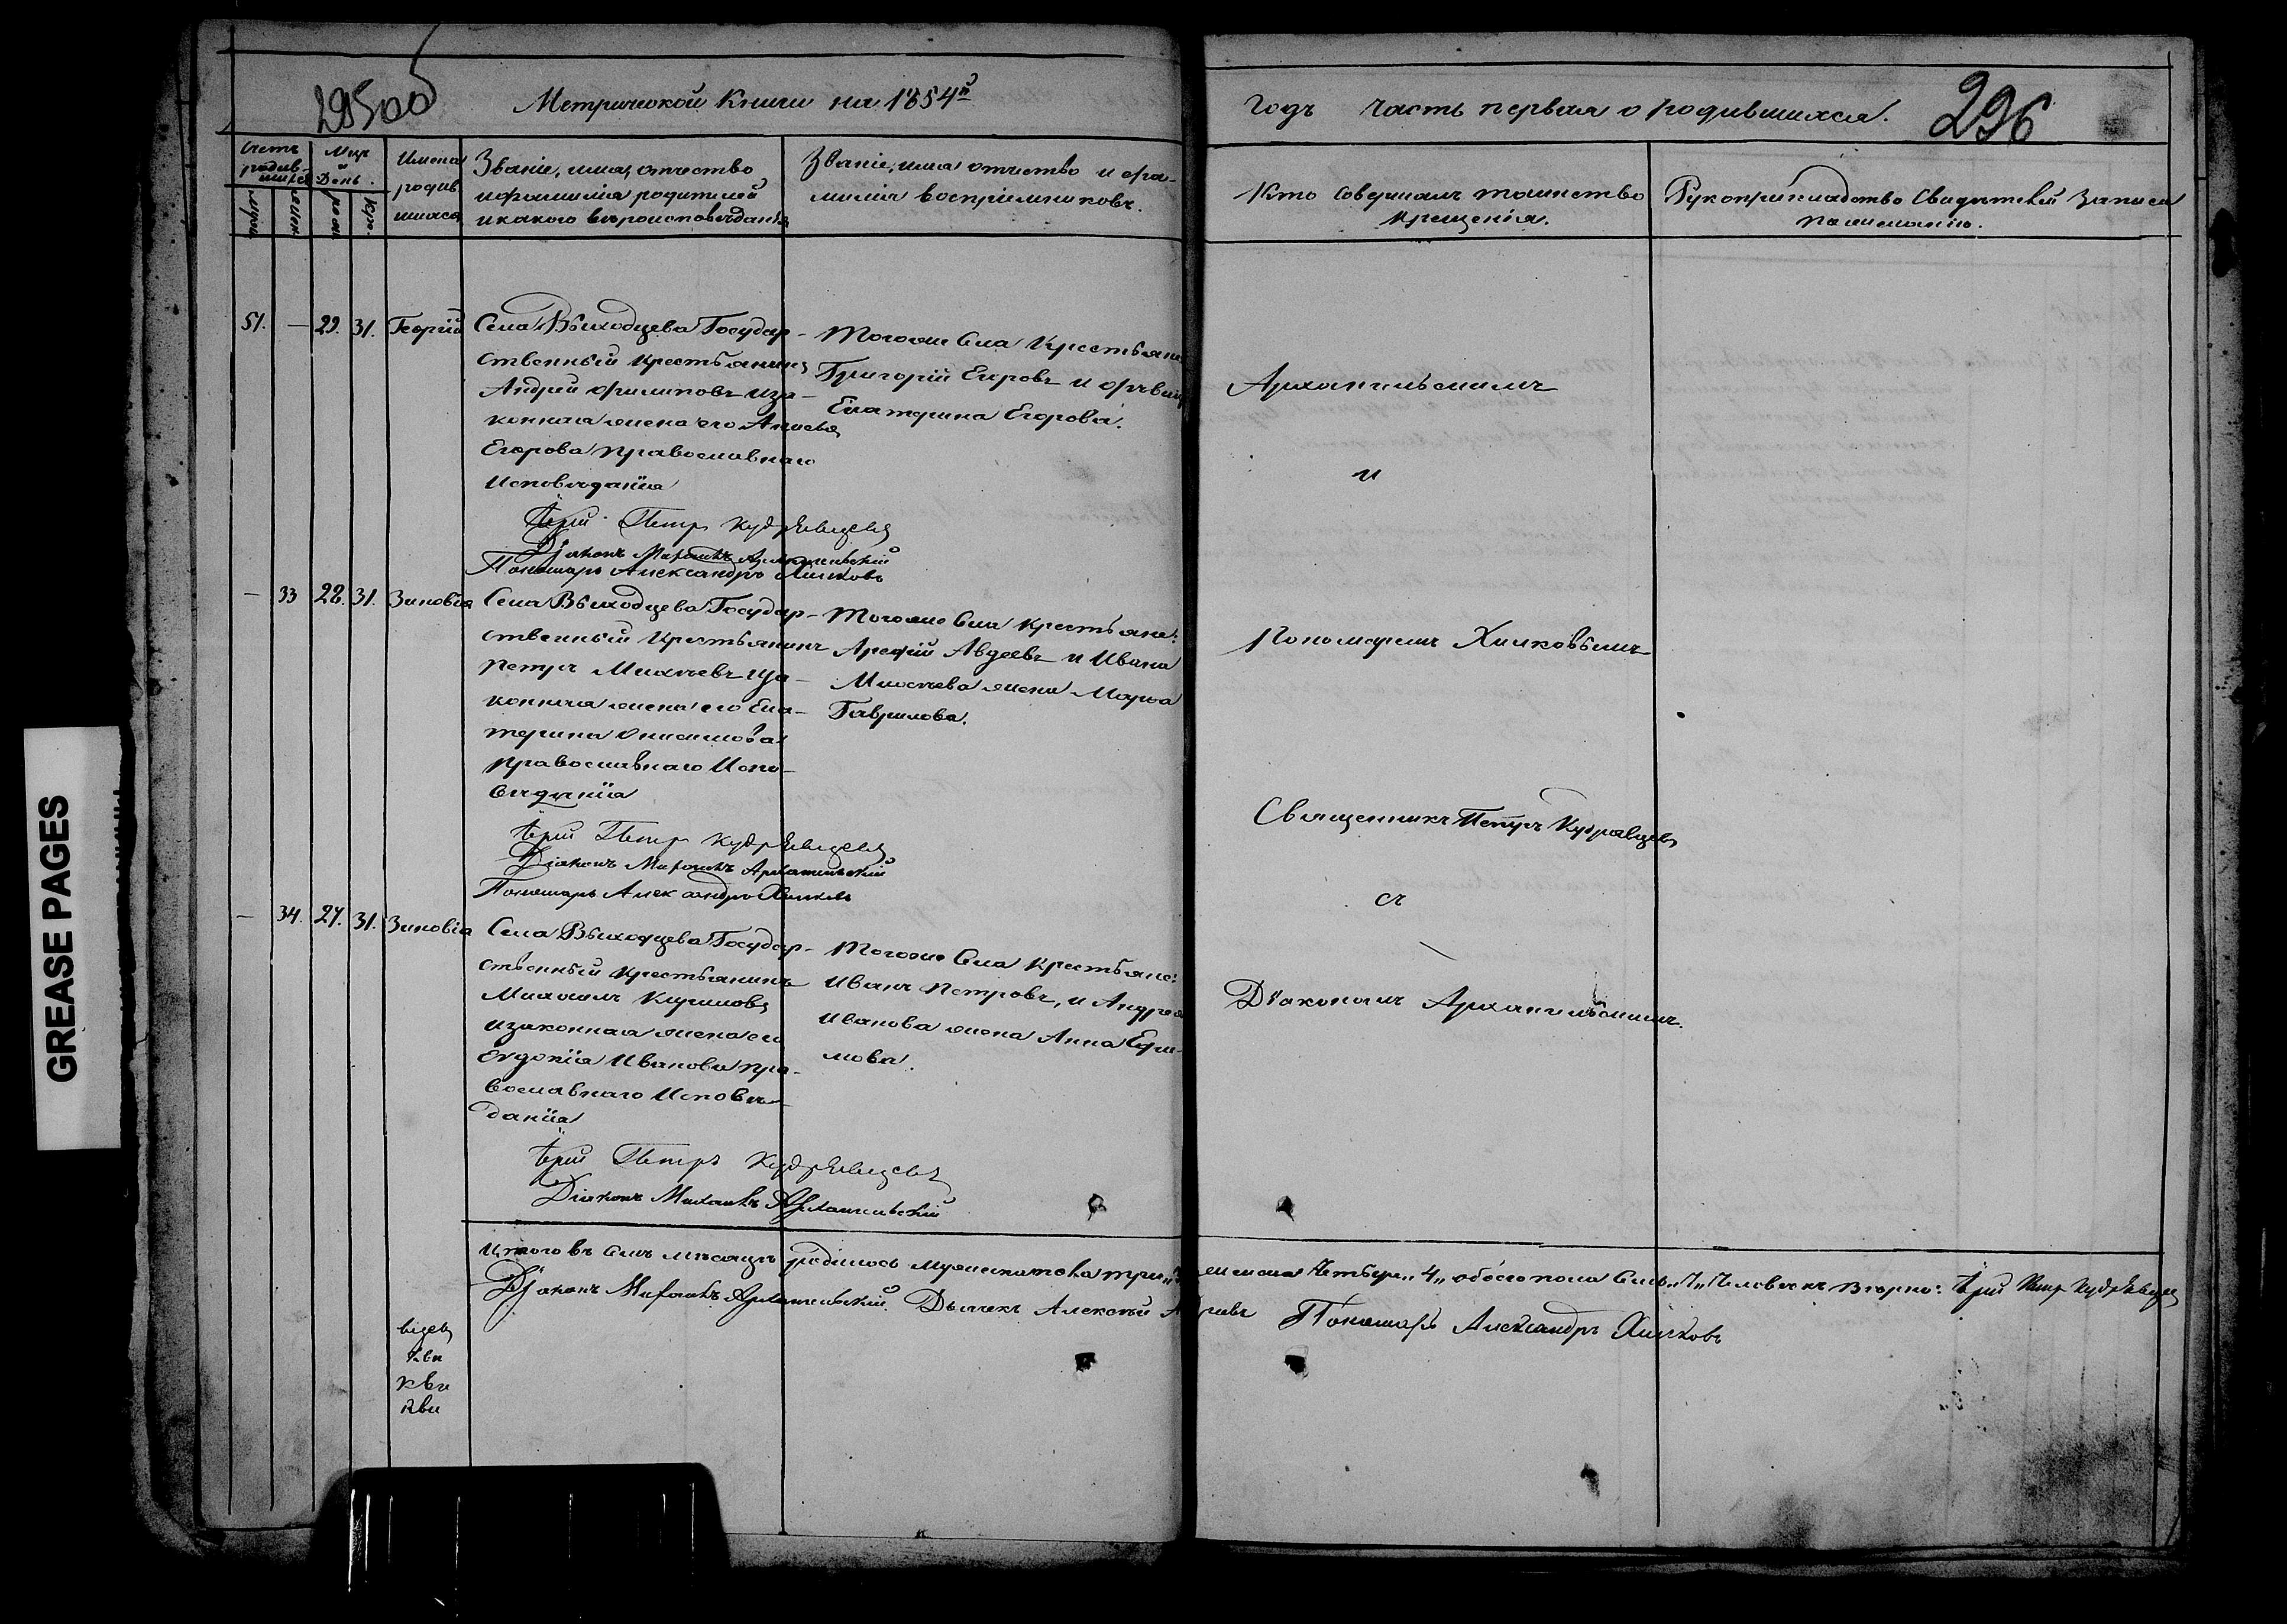 295об
Метрической Книги на 1854й
годъ часть первая о родившихся.
296
Счетъ родив-шихся
Мцъ и День.
Имена родив шихся
Званіе, имя, отчество
и фамилія родителей
и какого вѣроисповѣданія
Званіе, имя отчество и фа-
милія воспріемниковъ.
Кто совершалъ таинство
крещенія.
Рукоприкладство Свидѣтелей записи
по желанію.
51. — 29. 31. Георгій
Села Выходцева Государ-
ственный крестьянинъ
Андрей Филиповъ и за-
конная жена его
Егорова православнаго
Исповѣданія
Того же Села Крестьяне
Григорій Егоровъ и
Екатерина Егорова.
Іерей Петръ Кудрявцевъ
Діаконъ Михаилъ Архангельскій
Пономарь Александръ Хилковъ
— 33 28. 31. Зиновія
Села Выходцева Государ-
ственный Крестьянинъ
Петръ Михѣевъ и за-
конная жена его Ека-
терина Онисимова
православнаго Испо-
вѣданія
Того же Села крестьяне:
Арефій Авдеевъ и Ивана
жена Марѳа
Гаврилова.
Іерей Петръ Кудрявцевъ
Діаконъ Михаилъ Архангельскій
Пономарь Александръ Хилковъ
— 34. 27. 31. Зиновія
Села Выходцева Государ-
ственный крестьянинъ
Михаилъ Кириловъ
и законная жена его
Евдокія Иванова пра-
вославнаго Исповѣ-
данія
Того же Села Крестьяне:
Иванъ Петровъ, и Андрея
Иванова жена Анна Ефи-
мова.
Іерей Петръ Кудрявцевъ
Діаконъ Михаилъ Архангельскій
Архангельскимъ
и
Пономаремъ Хилковымъ
Священникъ Петръ Кудрявцевъ
съ
Діакономъ Архангельскимъ.
Итого въ семъ мѣсяцѣ родилось мужеска пола три, женска четыре „4„ обоего пола семь „7„ человѣкъ Вѣрно: Іерей Петръ Кудрявцевъ
Діаконъ Михаилъ Архангельскій Дьячекъ Алексѣй Пономарь Александръ Хилковъ
GREASE PAGES